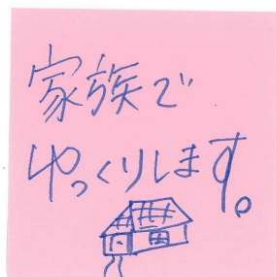 家族で
ゆっくりします。